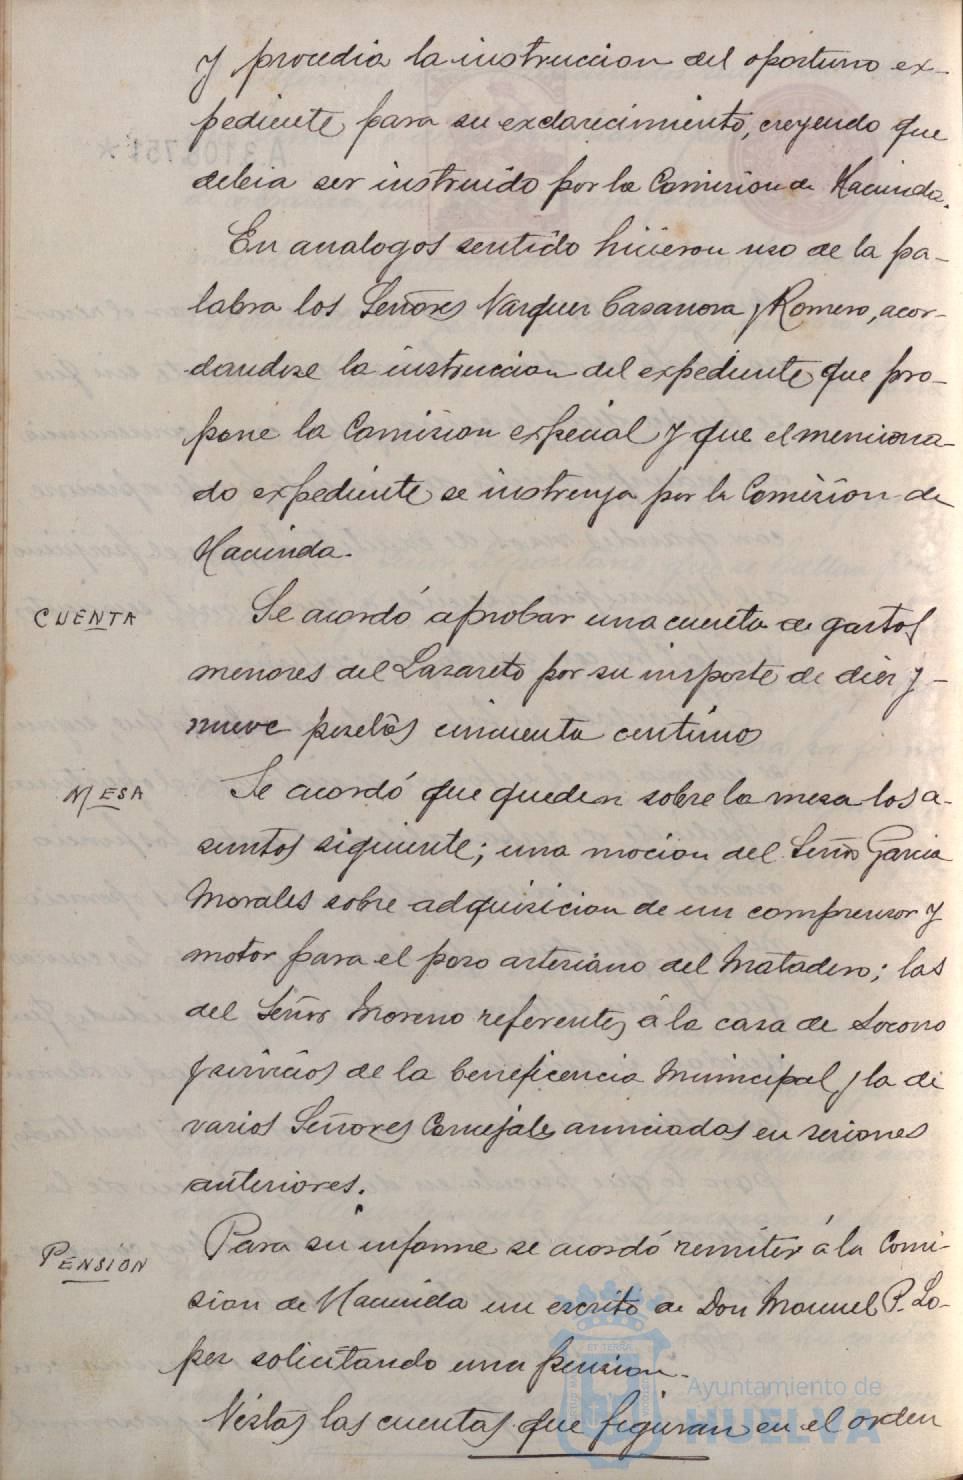 y procedia la instruccion del oportuno ex-
pediente, para su exclarecimiento, creyendo que
debia ser instruido por la Comision de Hacienda.
En analogos sentido hicieron uso de la pa-
labra los Señores Vazquez Casanova y Romero, acor-
dandose la instruccion del expediente que pro-
pone la Comision especial y que el menciona-
do expediente se instruya por la Comision de
Hacienda.
CUENTA
Se acordó aprobar una cuenta de gastos
menores del Lazareto por su importe de diez y -
nueve pesetas cincuenta centimos
MESA
Se acordó que queden sobre la mesa los a-
suntos siguiente; una mocion del Señor Garcia
Morales sobre adquisicion de un compresor y
motor para el pozo artesiano del Matadero; las
del Señor Moreno referentes á la casa de Socorro
y servicios de la beneficencia Municipal y la de
varios Señores Concejales anunciadas en sesiones
anteriores.
PENSION
Para su informe se acordó remitir á la Comi-
sion de Hacienda un escrito de Don Manuel P. Lo-
pez solicitando una pension.
Vistas las cuentas que figuran en el orden
Ayuntamiento de
HUELVA